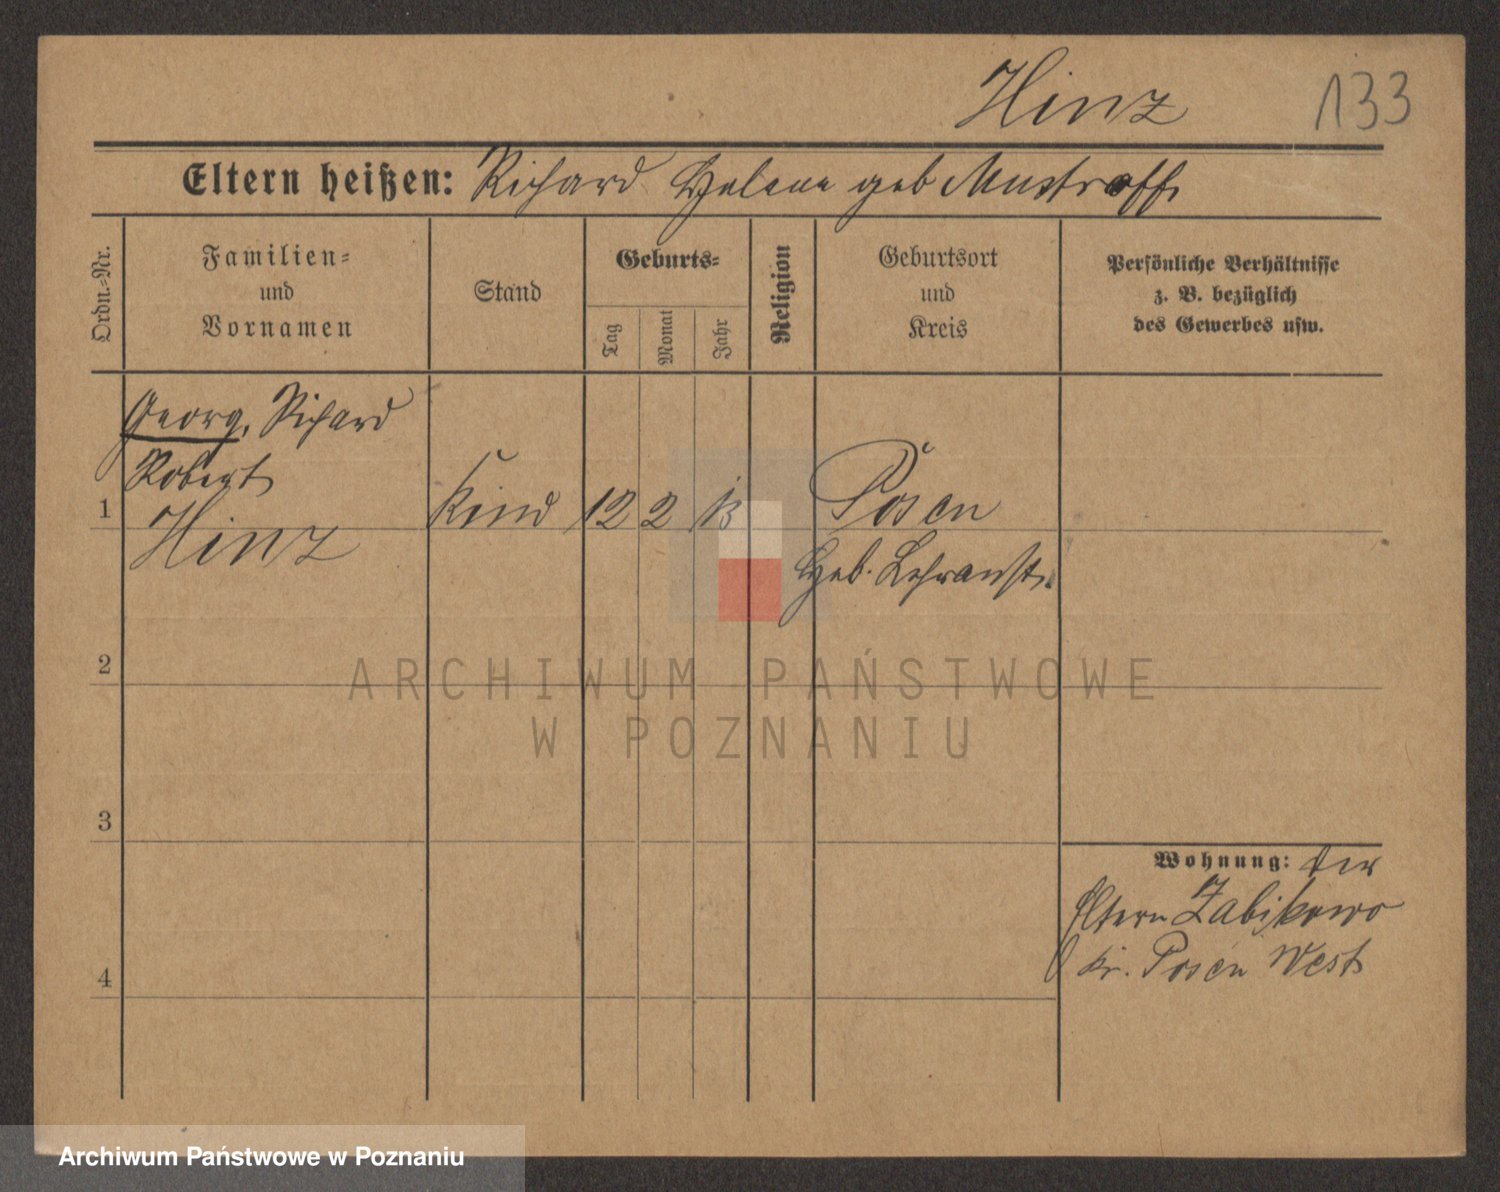 Hinz
133
Eltern heißen: Richard Helene geb Mustroff
Ordn.-Nr.
Familien-
und
Vornamen
Stand
Geburts-
Tag
Monat
Jahr
Religion
Geburtsort
und
Kreis
Persönliche Verhältnisse
z. B. bezüglich
des Gewerbes usw.
Georg, Richard
Robert
1
Hinz
Kind
12
2
13
Posen
Heb. Lehranst.
2
3
4
Wohnung: der
Eltern Zabikowo
Kr. Posen West
ARCHIWUM PAŃSTWOWE
W POZNANIU
Archiwum Państwowe w Poznaniu